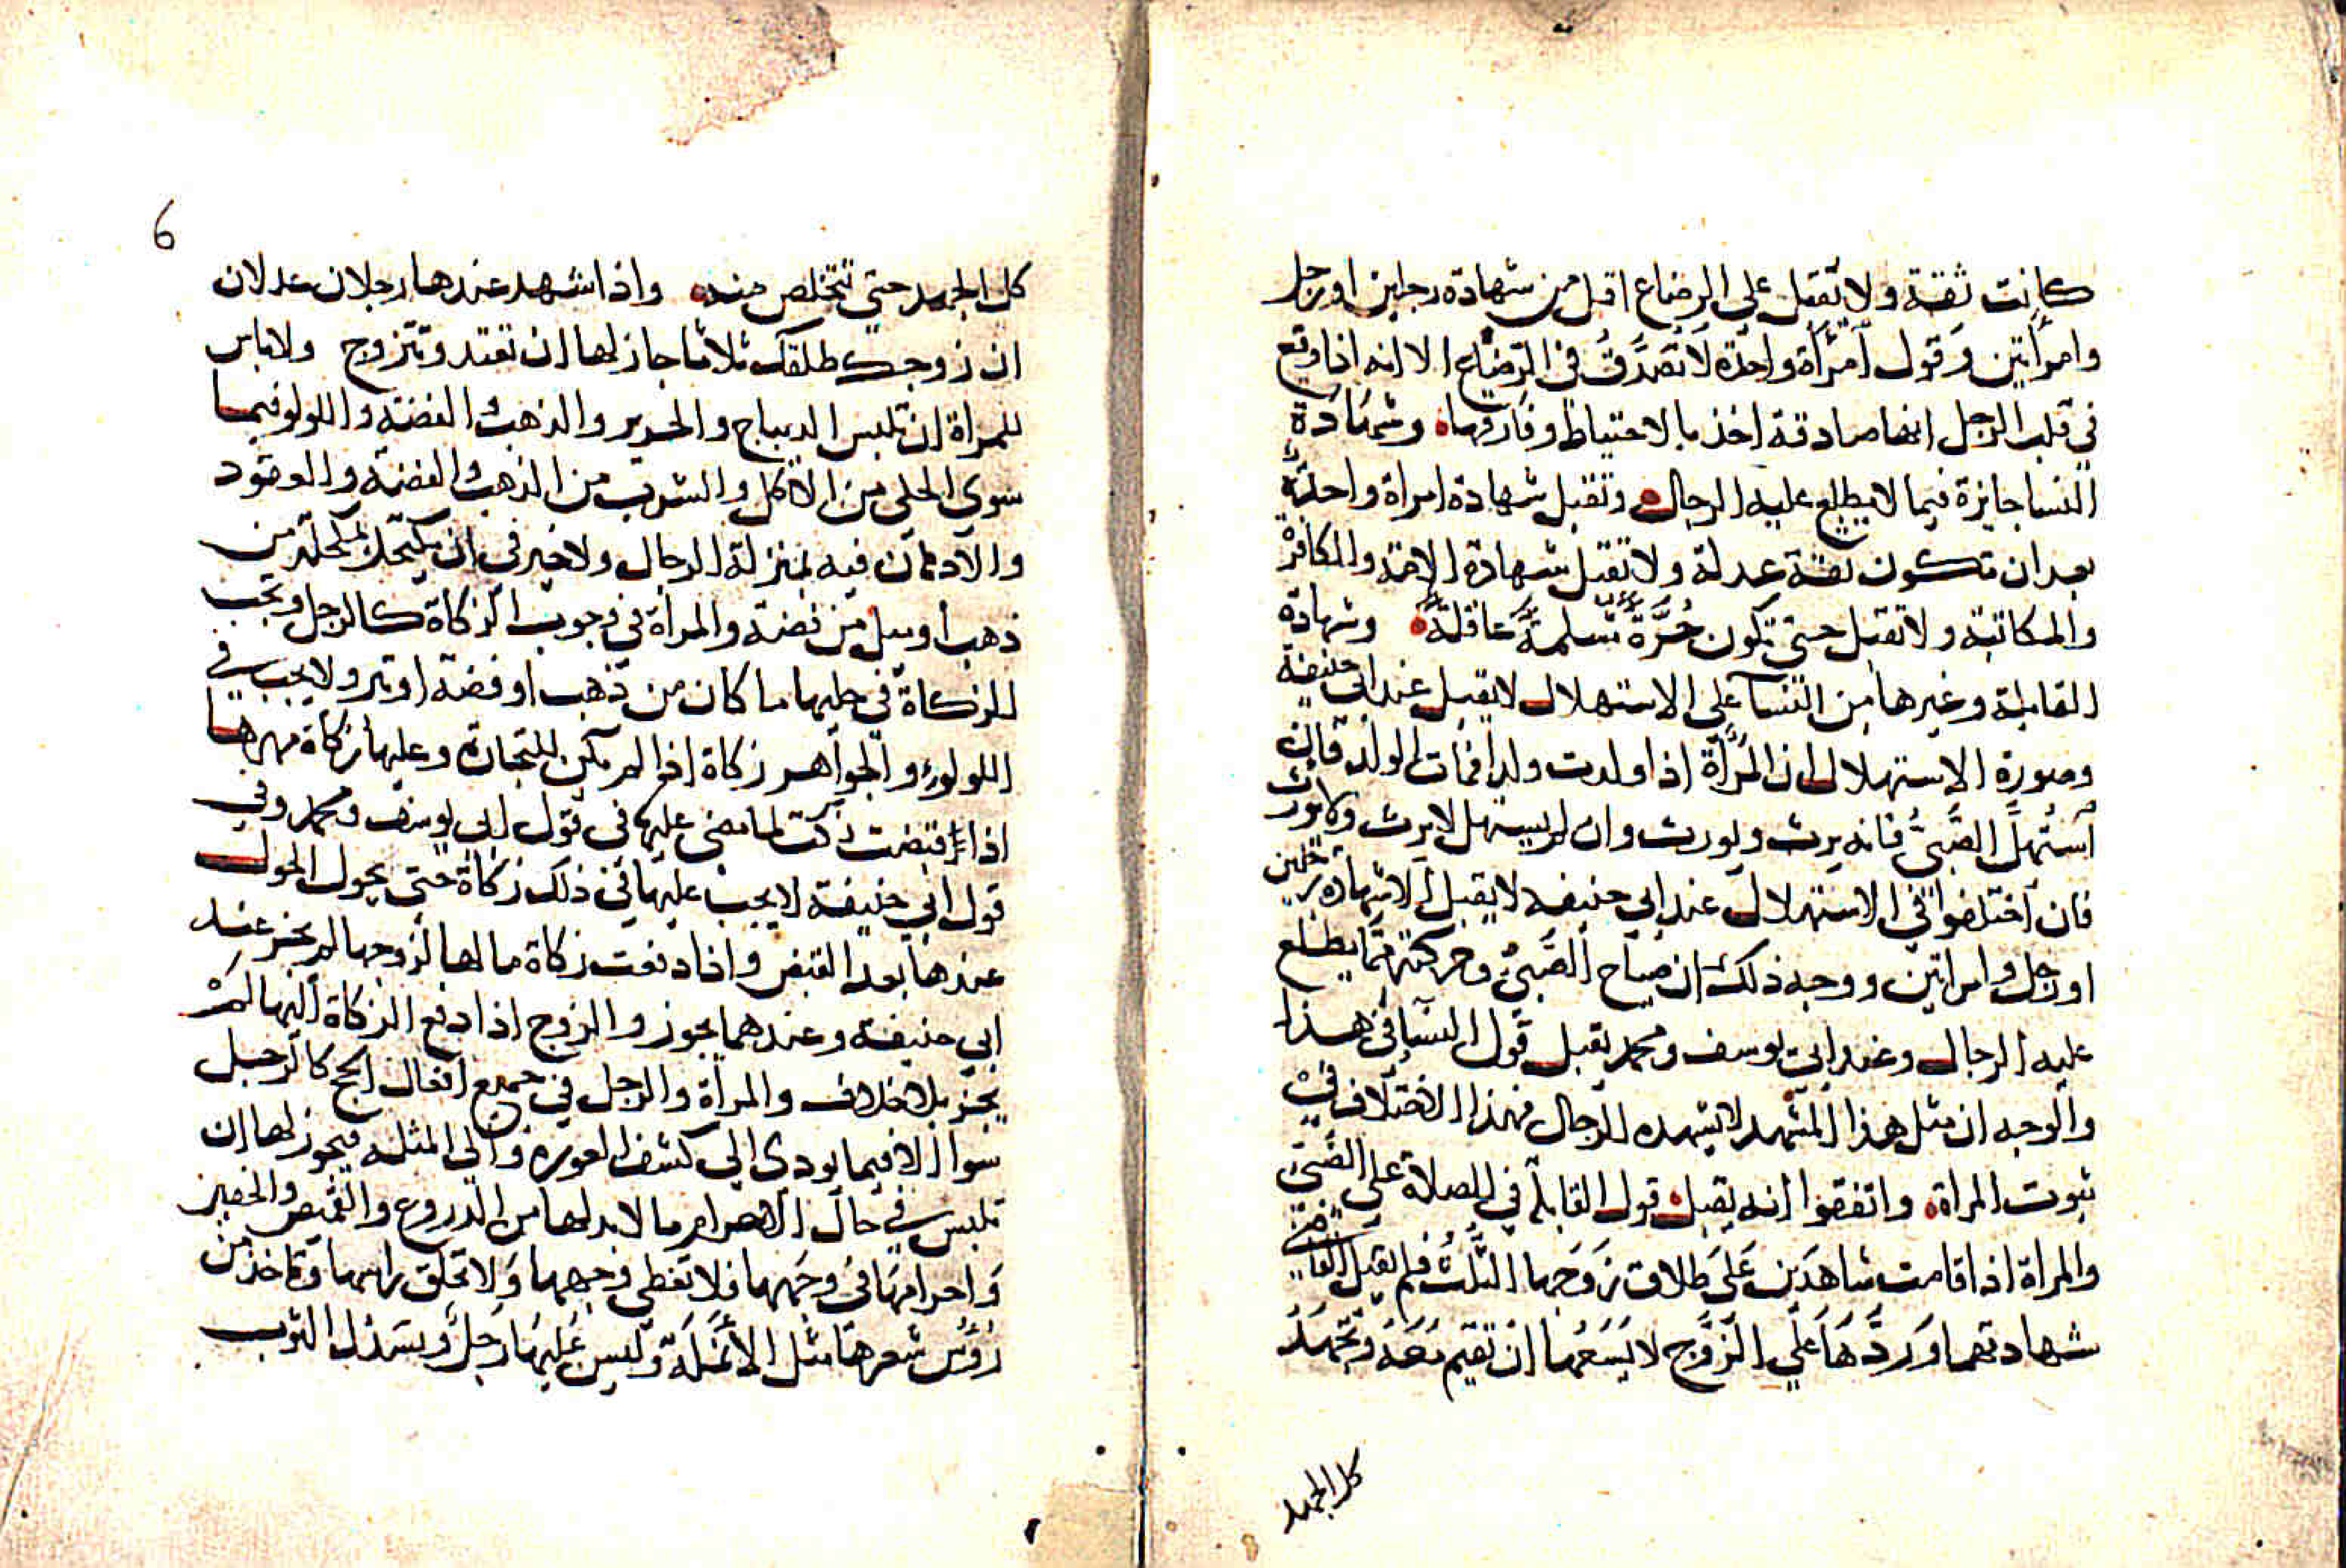 كانت ثقة ولا تقبل على الرضاع اقل من شهادة رجلين او رجل
وامرأتين وقول امرأة واحدة لا تصدق في الرضاع الا انه اذا وقع
في قلب الرجل انها صادقة اخذ بالاحتياط وفارقها وشهادة
النسا جايزة فيما لا يطلع عليه الرجال وتقبل شهادة امراة واحدة
بعد ان تكون ثقة عدلة ولا تقبل شهادة الامة والكافرة
والمكاتبة ولا تقبل حتى تكون حُرَّةً مسلمةً عاقلةً وشهادة
القابلة وغيرها من النسآ على الاستهلال لا يقبل عند ابي حنيفة
وصورة الاستهلال ان المرأة اذا ولدت ولدا فمات الولد فان
اَستُهلَّ الصَّبيُّ فانه يرث ويورث وان لم يستهل لا يرث ولا يورث
فان اختلفوا في الاستهلال عند ابي حنيفه لا يقبل الا شهادة رجلين
او رجل وامراتين ووجه ذلك ان صياح الصَّبيّ وحركته مما يطلع
عليه الرجال وعند ابي يوسف ومحمد يقبل قول النسآ في هذا
والوجه ان مثل هذا المشهد لا يشهده الرجال فهذا الاختلاف في
ثبوت المراة واتفقوا انه يقبل قول القابلة في الصلاة على الصَّبيّ
والمراة اذا قامت شاهدَين عَلىَ طلاق زَوَجها الثَّلثُ فلم يقبل القاضي
شهادتهما وَرَدَّهَا عَلَى الزَّوَج لا يَسَعُها ان تقيم مَعَهُ وتَجْهَدُ
كل الجهد
6
كل الجهد حتى تتخلص منه واذا شهد عندها رجلان عدلان
ان زوجك طلقك ثلاثا جاز لها ان تعتد وتتزوج ولا باس
للمراة ان تلبس الديباج والحرير والذهب والفضة واللولو فيما
سوى الحلي من الاكل والشرب من الذهب والفضة والعقود
والادهان فيه بمنزلة الرجال ولا خير في ان يكتحل بمكحلة من
ذهب او ميل من فضة والمرأة في وجوب الزكاة كالرجل وتجب
الزكاة في حليها ما كان من ذهب او فضة او تبر ولا يجب في
اللولوء والجواهر زكاة اذا لم تكن للتجارة وعليها زكاة مهرها
اذا قبضت زكت لما مضى عليها في قول ابي يوسف ومحمد وفي
قول ابي حنيفة لا يجب عليها في ذلك زكاة حتى يحول الحول
عندها بعد القبض واذا دفعت زكاة مالها لزوجها لم يجز عند
ابي حنيفة وعندهما يجوز والزوج اذا دفع الزكاة اليها لمْ
يجز بلا خلاف والمرأة والرجل في جميع افعال الحج كالرجل
سوا الا فيما يودى الى كشف العوره والى المثله فيجوز لها ان
تلبس في حال الاحرام ما لا بد لها من الدروع والقميص والخفين
وَاحرامها في وجهها فلا تغطى وجهها وَلا تحلق راسها وتاخذ من
رؤس شعرها مثل الأَنمَلَة وليس عَليها رَجل ويسدل الثوب